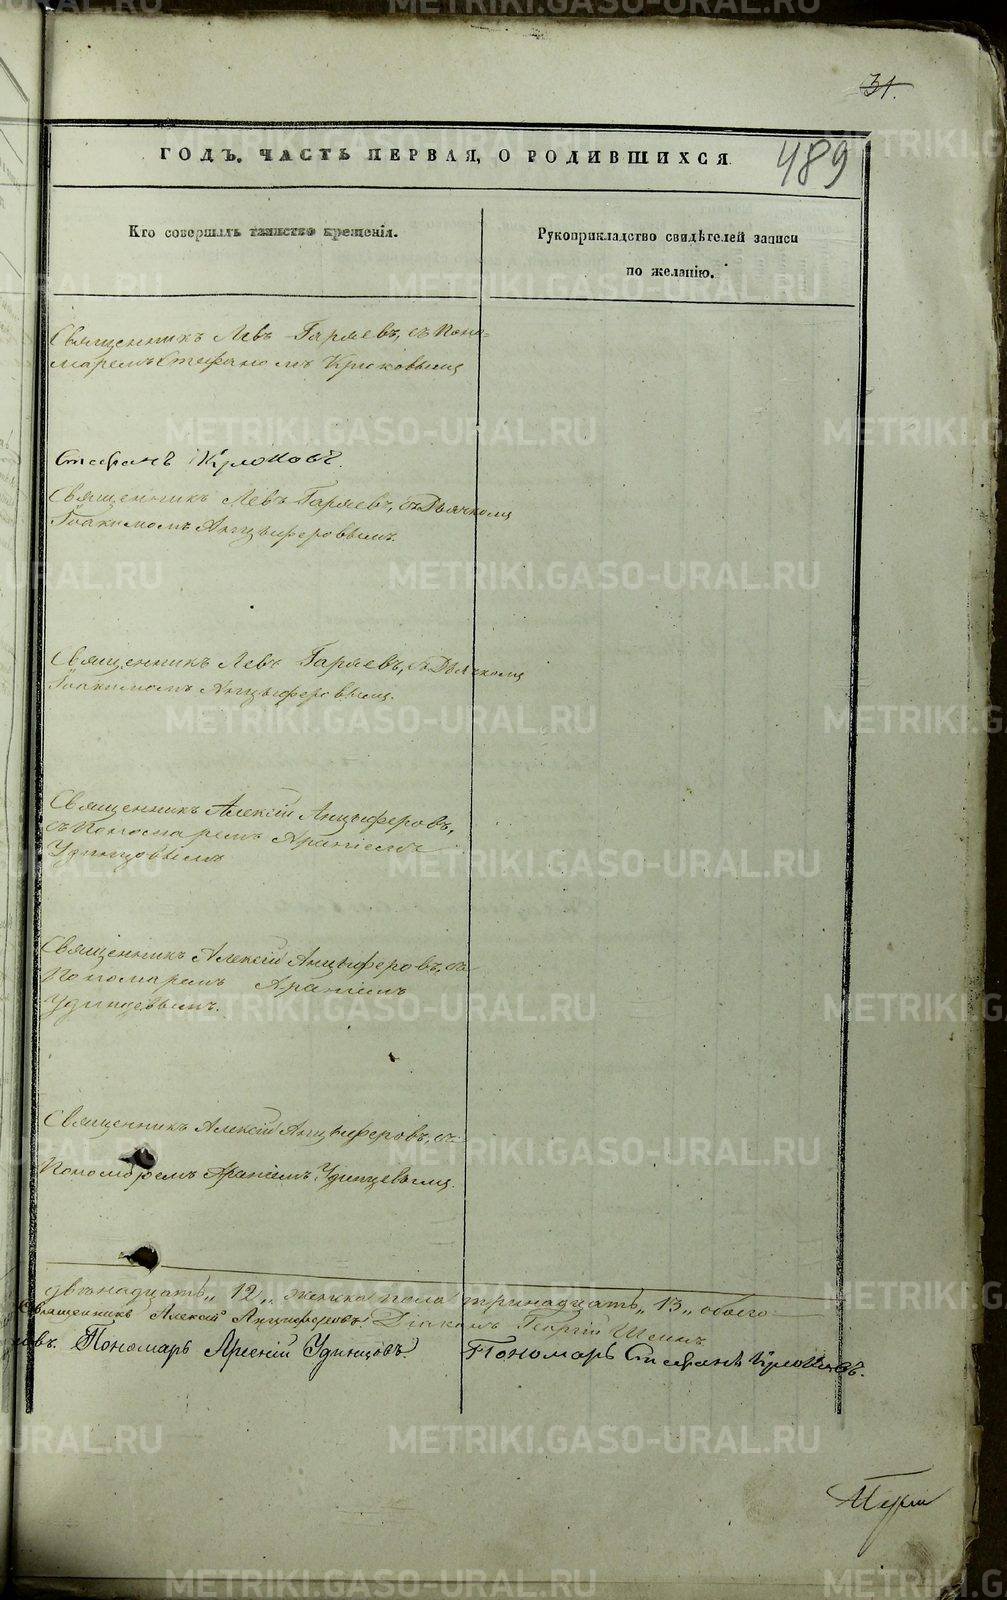 31.
489
ГОДЪ. ЧАСТЬ ПЕРВАЯ, О РОДИВШИХСЯ
Кто совершалъ таинство крещенія.
Рукоприкладство свидѣтелей записи
по желанію.
Священникъ Левъ Гаряевъ, съ Поно-
маремъ Стефаномъ Крюковымъ
Стефанъ Крюковъ.
Священникъ Левъ Гаряевъ, съ Дьячкомъ
Іоакимомъ Анцыферовымъ.
Священникъ Левъ Гаряевъ, съ Дьячкомъ
Іоакимомъ Анцыферовымъ.
Священникъ Алексій Анцыферовъ,
съ Пономаремъ Арсніемъ
Удинцовымъ
Священникъ Алексій Анцыферовъ, съ
Пономаремъ Арсніемъ
Удинцевымъ.
Священникъ Алексій Анцыферовъ, съ
Пономаремъ Арсніемъ Удинцевымъ.
двѣнадцать „12„ женска пола тринадцать „13„ обоего
Священникъ Алексій Анциферовъ. Діаконъ Георгій
овъ. Пономарь Арсеній Удинцовъ. Пономарь Стефанъ Крюковъ.
METRIKI.GASO-URAL.RU